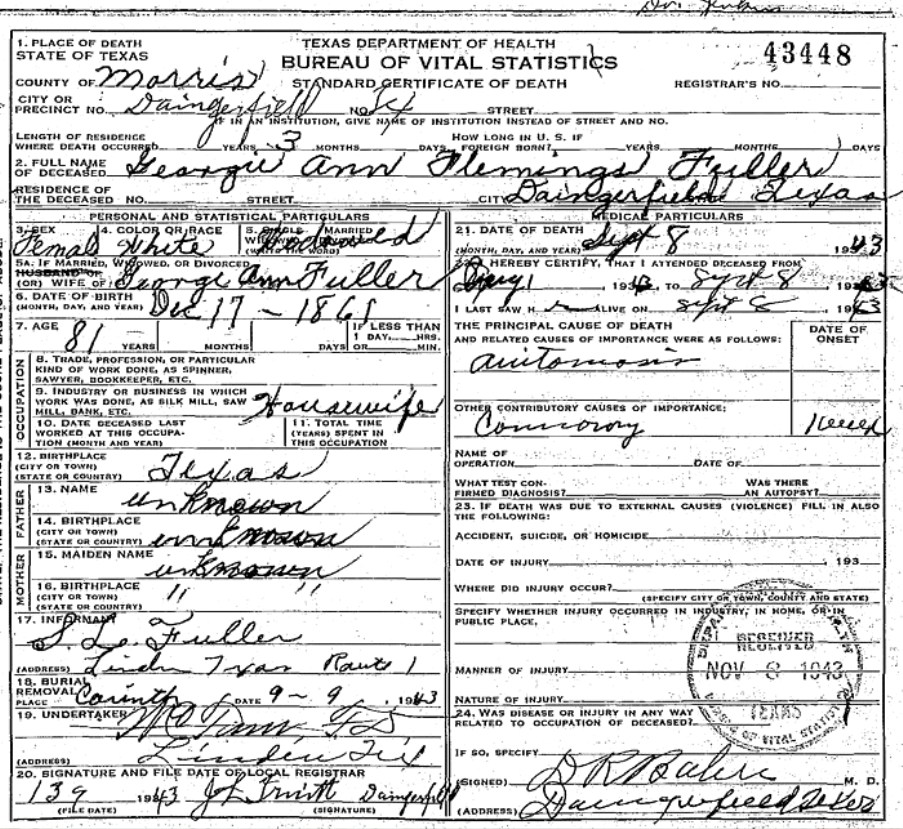 1. PLACE OF DEATH
STATE OF TEXAS
TEXAS DEPARTMENT OF HEALTH
BUREAU OF VITAL STATISTICS
STANDARD CERTIFICATE OF DEATH
43448
COUNTY OF Morris
REGISTRAR'S NO.
CITY OR
PRECINCT NO. Daingerfield NO. STREET
IF IN AN INSTITUTION, GIVE NAME OF INSTITUTION INSTEAD OF STREET AND NO.
LENGTH OF RESIDENCE
WHERE DEATH OCCURRED YEARS 3 MONTHS DAYS
HOW LONG IN U. S. IF
FOREIGN BORN? YEARS MONTHS DAYS
2. FULL NAME
OF DECEASED Georgie Ann Flemings Fuller
RESIDENCE OF
THE DECEASED NO. STREET CITY Daingerfield Texas
PERSONAL AND STATISTICAL PARTICULARS
3. SEX 4. COLOR OR RACE 5. SINGLE MARRIED
Female White Widowed
5A. IF MARRIED, WIDOWED, OR DIVORCED
HUSBAND OF
(OR) WIFE OF George Ann Fuller
6. DATE OF BIRTH
(MONTH, DAY, AND YEAR) Dec 17 - 1861
7. AGE 81 YEARS MONTHS DAYS
IF LESS THAN
1 DAY, HRS.
OR MIN.
OCCUPATION
8. TRADE, PROFESSION, OR PARTICULAR
KIND OF WORK DONE, AS SPINNER,
SAWYER, BOOKKEEPER, ETC.
9. INDUSTRY OR BUSINESS IN WHICH
WORK WAS DONE, AS SILK MILL, SAW
MILL, BANK, ETC. Housewife
10. DATE DECEASED LAST
WORKED AT THIS OCCUPA-
TION (MONTH AND YEAR)
11. TOTAL TIME
(YEARS) SPENT IN
THIS OCCUPATION
12. BIRTHPLACE
(CITY OR TOWN)
(STATE OR COUNTRY) Texas
FATHER
13. NAME
unknown
14. BIRTHPLACE
(CITY OR TOWN)
(STATE OR COUNTRY) unknown
MOTHER
15. MAIDEN NAME
unknown
16. BIRTHPLACE " "
(CITY OR TOWN)
(STATE OR COUNTRY)
17. INFORMANT
S. L. Fuller
(ADDRESS) Linden Texas Route 1
18. BURIAL
REMOVAL
PLACE Corinth DATE 9-9, 1943
19. UNDERTAKER
(ADDRESS) Linden Tex
20. SIGNATURE AND FILE DATE OF LOCAL REGISTRAR
139 1943 Daingerfield
(FILE DATE) (SIGNATURE)
MEDICAL PARTICULARS
21. DATE OF DEATH
(MONTH, DAY, AND YEAR) Sept 8 1943
22. I HEREBY CERTIFY, THAT I ATTENDED DECEASED FROM
1943, TO Sept 8 1943
I LAST SAW H ALIVE ON Sept 8, 1943
THE PRINCIPAL CAUSE OF DEATH
AND RELATED CAUSES OF IMPORTANCE WERE AS FOLLOWS:
DATE OF
ONSET
OTHER CONTRIBUTORY CAUSES OF IMPORTANCE:
NAME OF
OPERATION DATE OF
WHAT TEST CON-
FIRMED DIAGNOSIS?
WAS THERE
AN AUTOPSY?
23. IF DEATH WAS DUE TO EXTERNAL CAUSES (VIOLENCE) FILL IN ALSO
THE FOLLOWING:
ACCIDENT, SUICIDE, OR HOMICIDE
DATE OF INJURY , 193
WHERE DID INJURY OCCUR?
(SPECIFY CITY OR TOWN, COUNTY AND STATE)
SPECIFY WHETHER INJURY OCCURRED IN INDUSTRY, IN HOME, OR IN
PUBLIC PLACE.
RECEIVED
NOV 8 1943
TEXAS
OF VITAL STATISTICS
MANNER OF INJURY
NATURE OF INJURY
24. WAS DISEASE OR INJURY IN ANY WAY
RELATED TO OCCUPATION OF DECEASED?
IF SO, SPECIFY
(SIGNED) M. D.
(ADDRESS) Daingerfield Texas